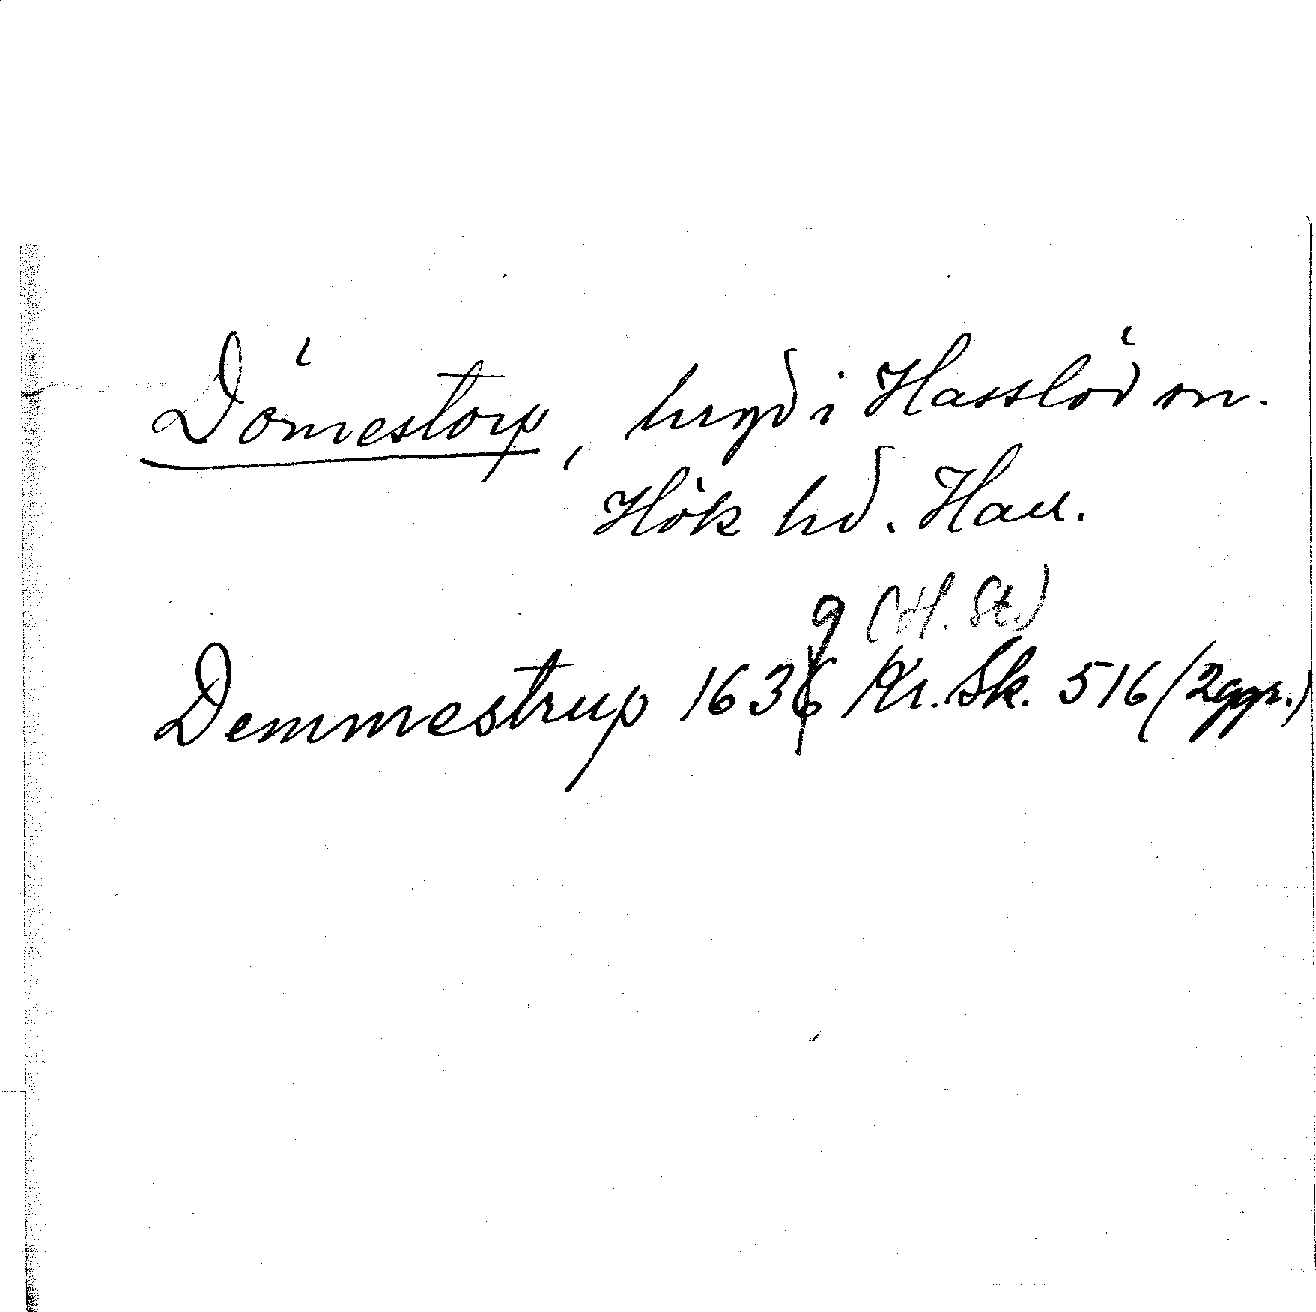 Dömestorp, bygd i Hasslöv sn.
Hök hd. Hall.
9 (H. St.)
Demmestrup 1636 Kr. Sk. 516 (2ggr.)